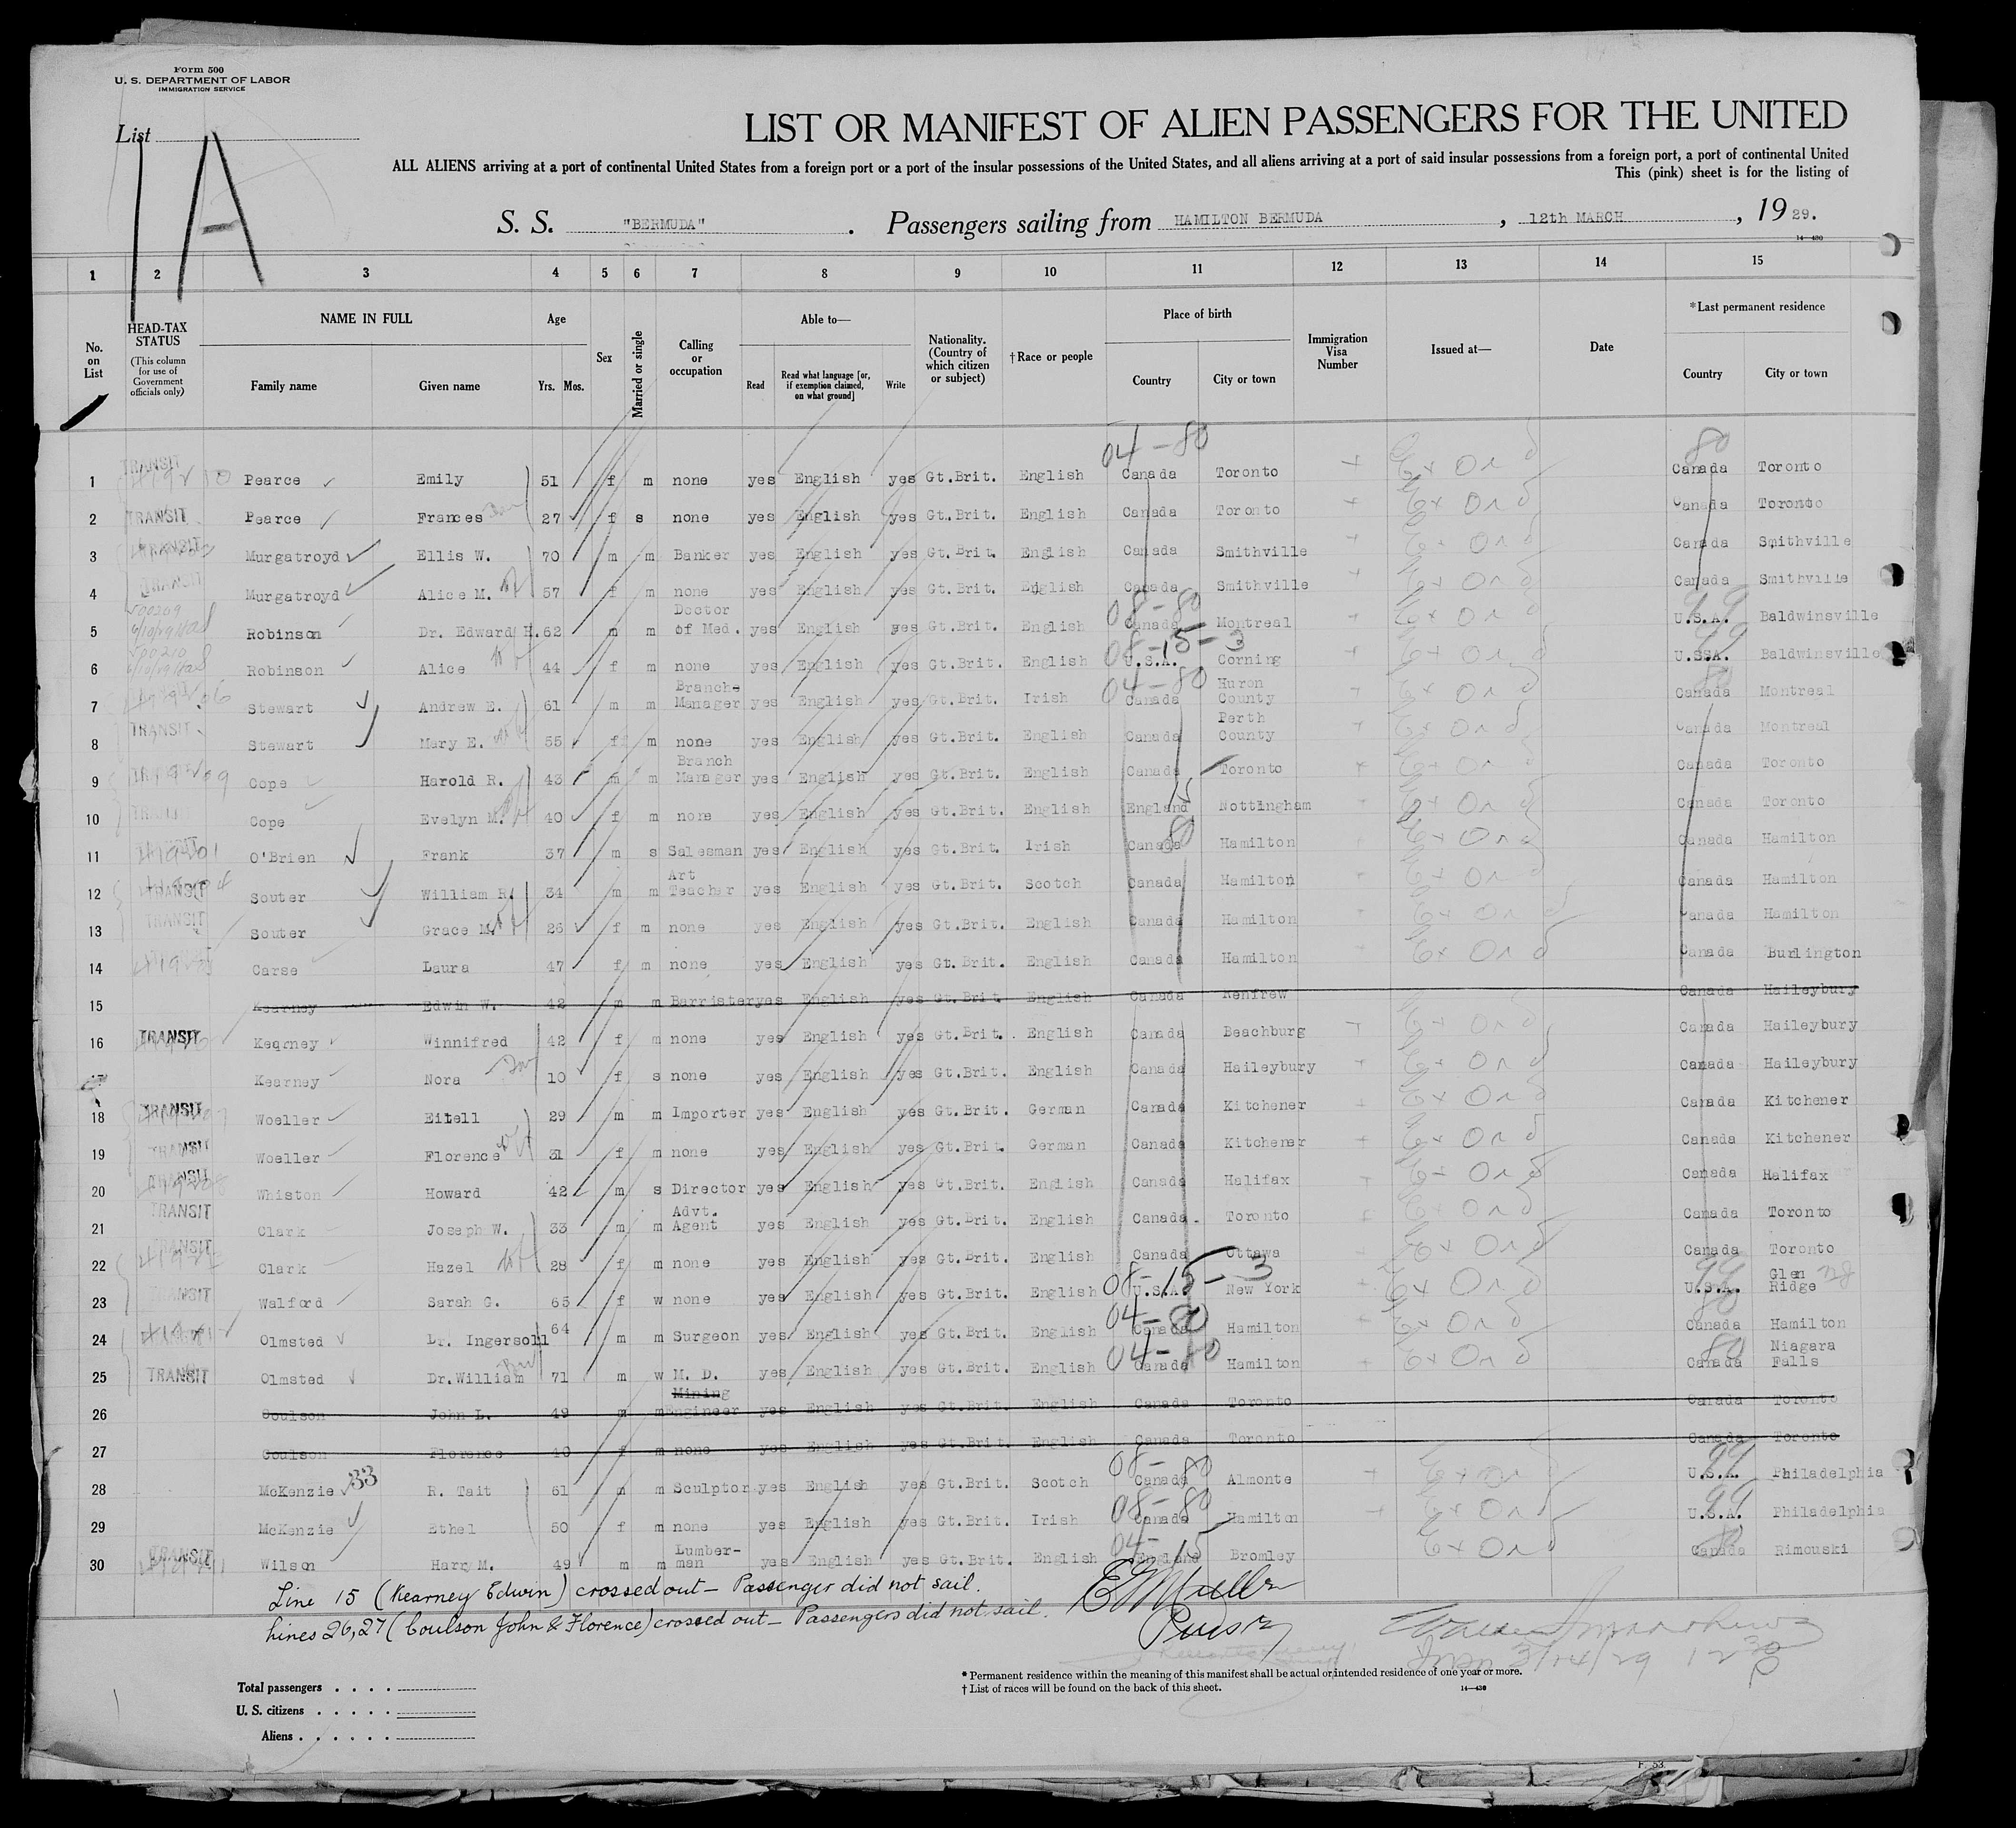 Form 500
U. S. DEPARTMENT OF LABOR
IMMIGRATION SERVICE
List
1A
LIST OR MANIFEST OF ALIEN PASSENGERS FOR THE UNITED
ALL ALIENS arriving at a port of continental United States from a foreign port or a port of the insular possessions of the United States, and all aliens arriving at a port of said insular possessions from a foreign port, a port of continental United
This (pink) sheet is for the listing of
S. S. "BERMUDA". Passengers sailing from HAMILTON BERMUDA, 12th MARCH, 1929.
14—430
1 2 3 4 5 6 7 8 9 10 11 12 13 14 15
No. on List
HEAD-TAX STATUS (This column for use of Government officials only)
NAME IN FULL Family name Given name
Age Yrs. Mos.
Sex
Married or single
Calling or occupation
Able to— Read Read what language [or, if exemption claimed, on what ground] Write
Nationality. (Country of which citizen or subject)
†Race or people
Place of birth Country City or town
Immigration Visa Number
Issued at—
Date
*Last permanent residence Country City or town
04-80 80
1 TRANSIT Pearce Emily 51 f m none yes English yes Gt.Brit. English Canada Toronto Canada Toronto
2 TRANSIT Pearce Frances 27 f s none yes English yes Gt.Brit. English Canada Toronto Canada Toronto
3 TRANSIT Murgatroyd Ellis W. 70 m m Banker yes English yes Gt.Brit. English Canada Smithville Canada Smithville
4 TRANSIT Murgatroyd Alice M. 57 f m none yes English yes Gt.Brit. English Canada Smithville Canada Smithville
5 Robinson Dr. Edward H. 62 m m Doctor of Med. yes English yes Gt.Brit. English 08-80 Canada Montreal U.S.A. Baldwinsville
6 Robinson Alice 44 f m none yes English yes Gt.Brit. English 08-15-3 U.S.A. Corning U.SSA. Baldwinsville
7 Stewart Andrew E. 61 m m Branch- Manager yes English yes Gt.Brit. Irish 04-80 Canada Huron County Canada Montreal
8 TRANSIT Stewart Mary E. 55 f m none yes English yes Gt.Brit. English Canada Perth County Canada Montreal
9 Cope Harold R. 43 m m Branch Manager yes English yes Gt.Brit. English Canada Toronto Canada Toronto
10 Cope Evelyn M. 40 f m none yes English yes Gt.Brit. English England 15 Nottingham Canada Toronto
11 O'Brien Frank 37 m s Salesman yes English yes Gt.Brit. Irish Canada 80 Hamilton Canada Hamilton
12 TRANSIT Souter William R. 34 m m Art Teacher yes English yes Gt.Brit. Scotch Canada Hamilton Canada Hamilton
13 TRANSIT Souter Grace M. 26 f m none yes English yes Gt.Brit. English Canada Hamilton Canada Hamilton
14 Carse Laura 47 f m none yes English yes Gt.Brit. English Canada Hamilton Canada Burlington
15 Kearney Edwin W. 42 m m Barrister yes English yes Gt.Brit. English Canada Renfrew Canada Haileybury
16 TRANSIT Kearney Winnifred 42 f m none yes English yes Gt.Brit. English Canada Beachburg Canada Haileybury
Kearney Nora 10 f s none yes English yes Gt.Brit. English Canada Haileybury Canada Haileybury
18 TRANSIT Woeller Eitell 29 m m Importer yes English yes Gt.Brit. German Canada Kitchener Canada Kitchener
19 TRANSIT Woeller Florence 31 f m none yes English yes Gt.Brit. German Canada Kitchener Canada Kitchener
20 TRANSIT Whiston Howard 42 m s Director yes English yes Gt.Brit. English Canada Halifax Canada Halifax
21 TRANSIT Clark Joseph W. 33 m m Advt. Agent yes English yes Gt.Brit. English Canada Toronto Canada Toronto
22 TRANSIT Clark Hazel 28 f m none yes English yes Gt.Brit. English Canada Ottawa Canada Toronto
23 TRANSIT Walford Sarah G. 65 f w none yes English yes Gt.Brit. English 08-15-3 U.S.A. New York U.S.A. Glen Ridge
24 Olmsted Dr. Ingersoll 64 m m Surgeon yes English yes Gt.Brit. English 04-80 Canada Hamilton Canada Hamilton
25 TRANSIT Olmsted Dr.William 71 m w M. D. yes English yes Gt.Brit. English 04-80 Canada Hamilton Canada Niagara Falls
26 Coulson John L. 49 m m Mining Engineer yes English yes Gt.Brit. English Canada Toronto Canada Toronto
27 Coulson Florence 40 f m none yes English yes Gt.Brit. English Canada Toronto Canada Toronto
28 McKenzie 33 R. Tait 61 m m Sculptor yes English yes Gt.Brit. Scotch 08-80 Canada Almonte U.S.A. Philadelphia
29 McKenzie Ethel 50 f m none yes English yes Gt.Brit. Irish 08-80 Canada Hamilton U.S.A. Philadelphia
30 TRANSIT Wilson Harry M. 49 m m Lumber- man yes English yes Gt.Brit. English 04-15 England Bromley Canada Rimouski
Line 15 (Kearney Edwin) crossed out — Passenger did not sail.
Lines 26,27 (Coulson John & Florence) crossed out — Passengers did not sail.
Purser
3/14/29
* Permanent residence within the meaning of this manifest shall be actual or intended residence of one year or more.
† List of races will be found on the back of this sheet.
14—430
Total passengers
U. S. citizens
Aliens